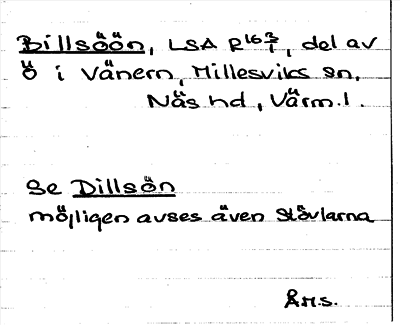 Billsöön, LSA R16 2/1, del av
ö i Vänern, Millesviks sn,
Näs hd, Värm.l.
Se Dillsön
möjligen avses även Stövlarna
ÅHS.